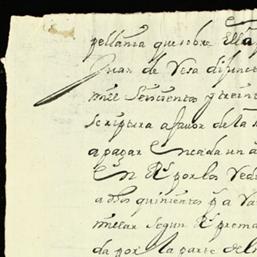 pellania que sobre ella
Juan de Vesa difunct
mill Seiscientos y treint
scriptura a favor de la
a pagar En cada un a
En Rl por los Ved
a dos quinientos p a Va
millar segun Rl prema
da por la parte del